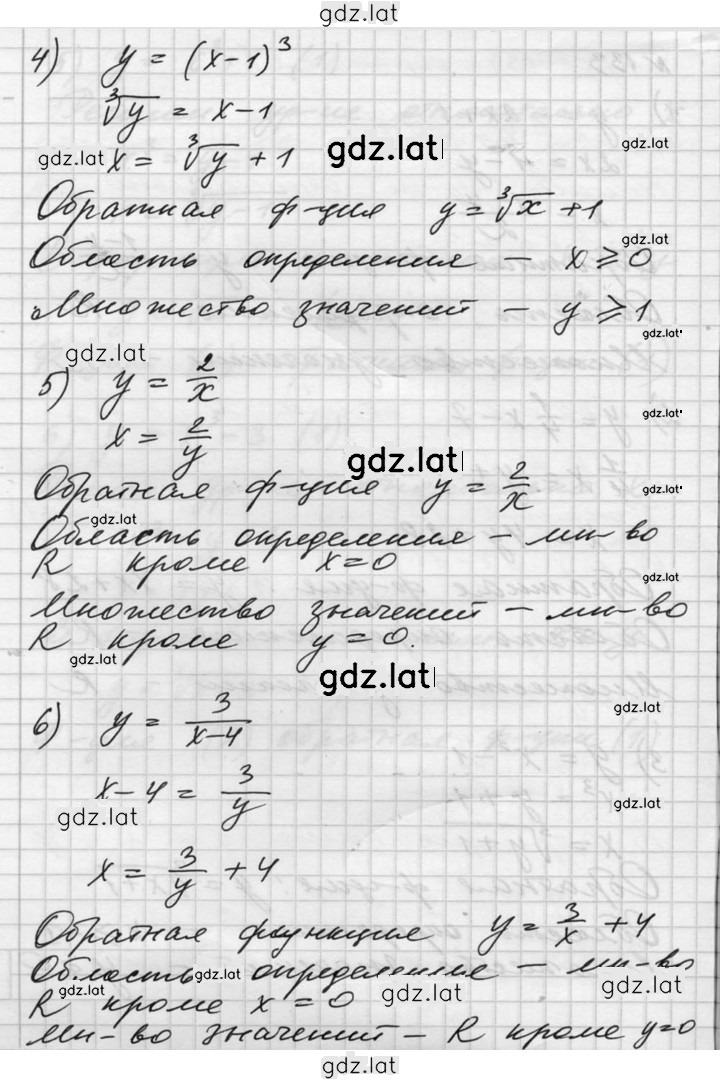 gdz.lat
4) y = (x-1)³
∛y = x-1
gdz.lat x = ∛y + 1 gdz.lat gdz.lat
Обратная ф-ция y = ∛x + 1
gdz.lat
Область определения - x ⩾ 0
Множество значений - y ⩾ 1
gdz.lat
gdz.lat
5) y = 2/x
gdz.lat
x = 2/y
gdz.lat
Обратная ф-ция y = 2/x
gdz.lat
gdz.lat
Область определения - мн-во
R кроме x = 0
gdz.lat
Множество значений - мн-во
R кроме y = 0.
gdz.lat
gdz.lat
gdz.lat
6) y = 3/(x-4)
x - 4 = 3/y
gdz.lat gdz.lat
x = 3/y + 4
Обратная функция y = 3/x + 4
gdz.lat
Область определение - мн-во
gdz.lat gdz.lat
R кроме x = 0
Мн-во значений - R кроме y=0
gdz.lat